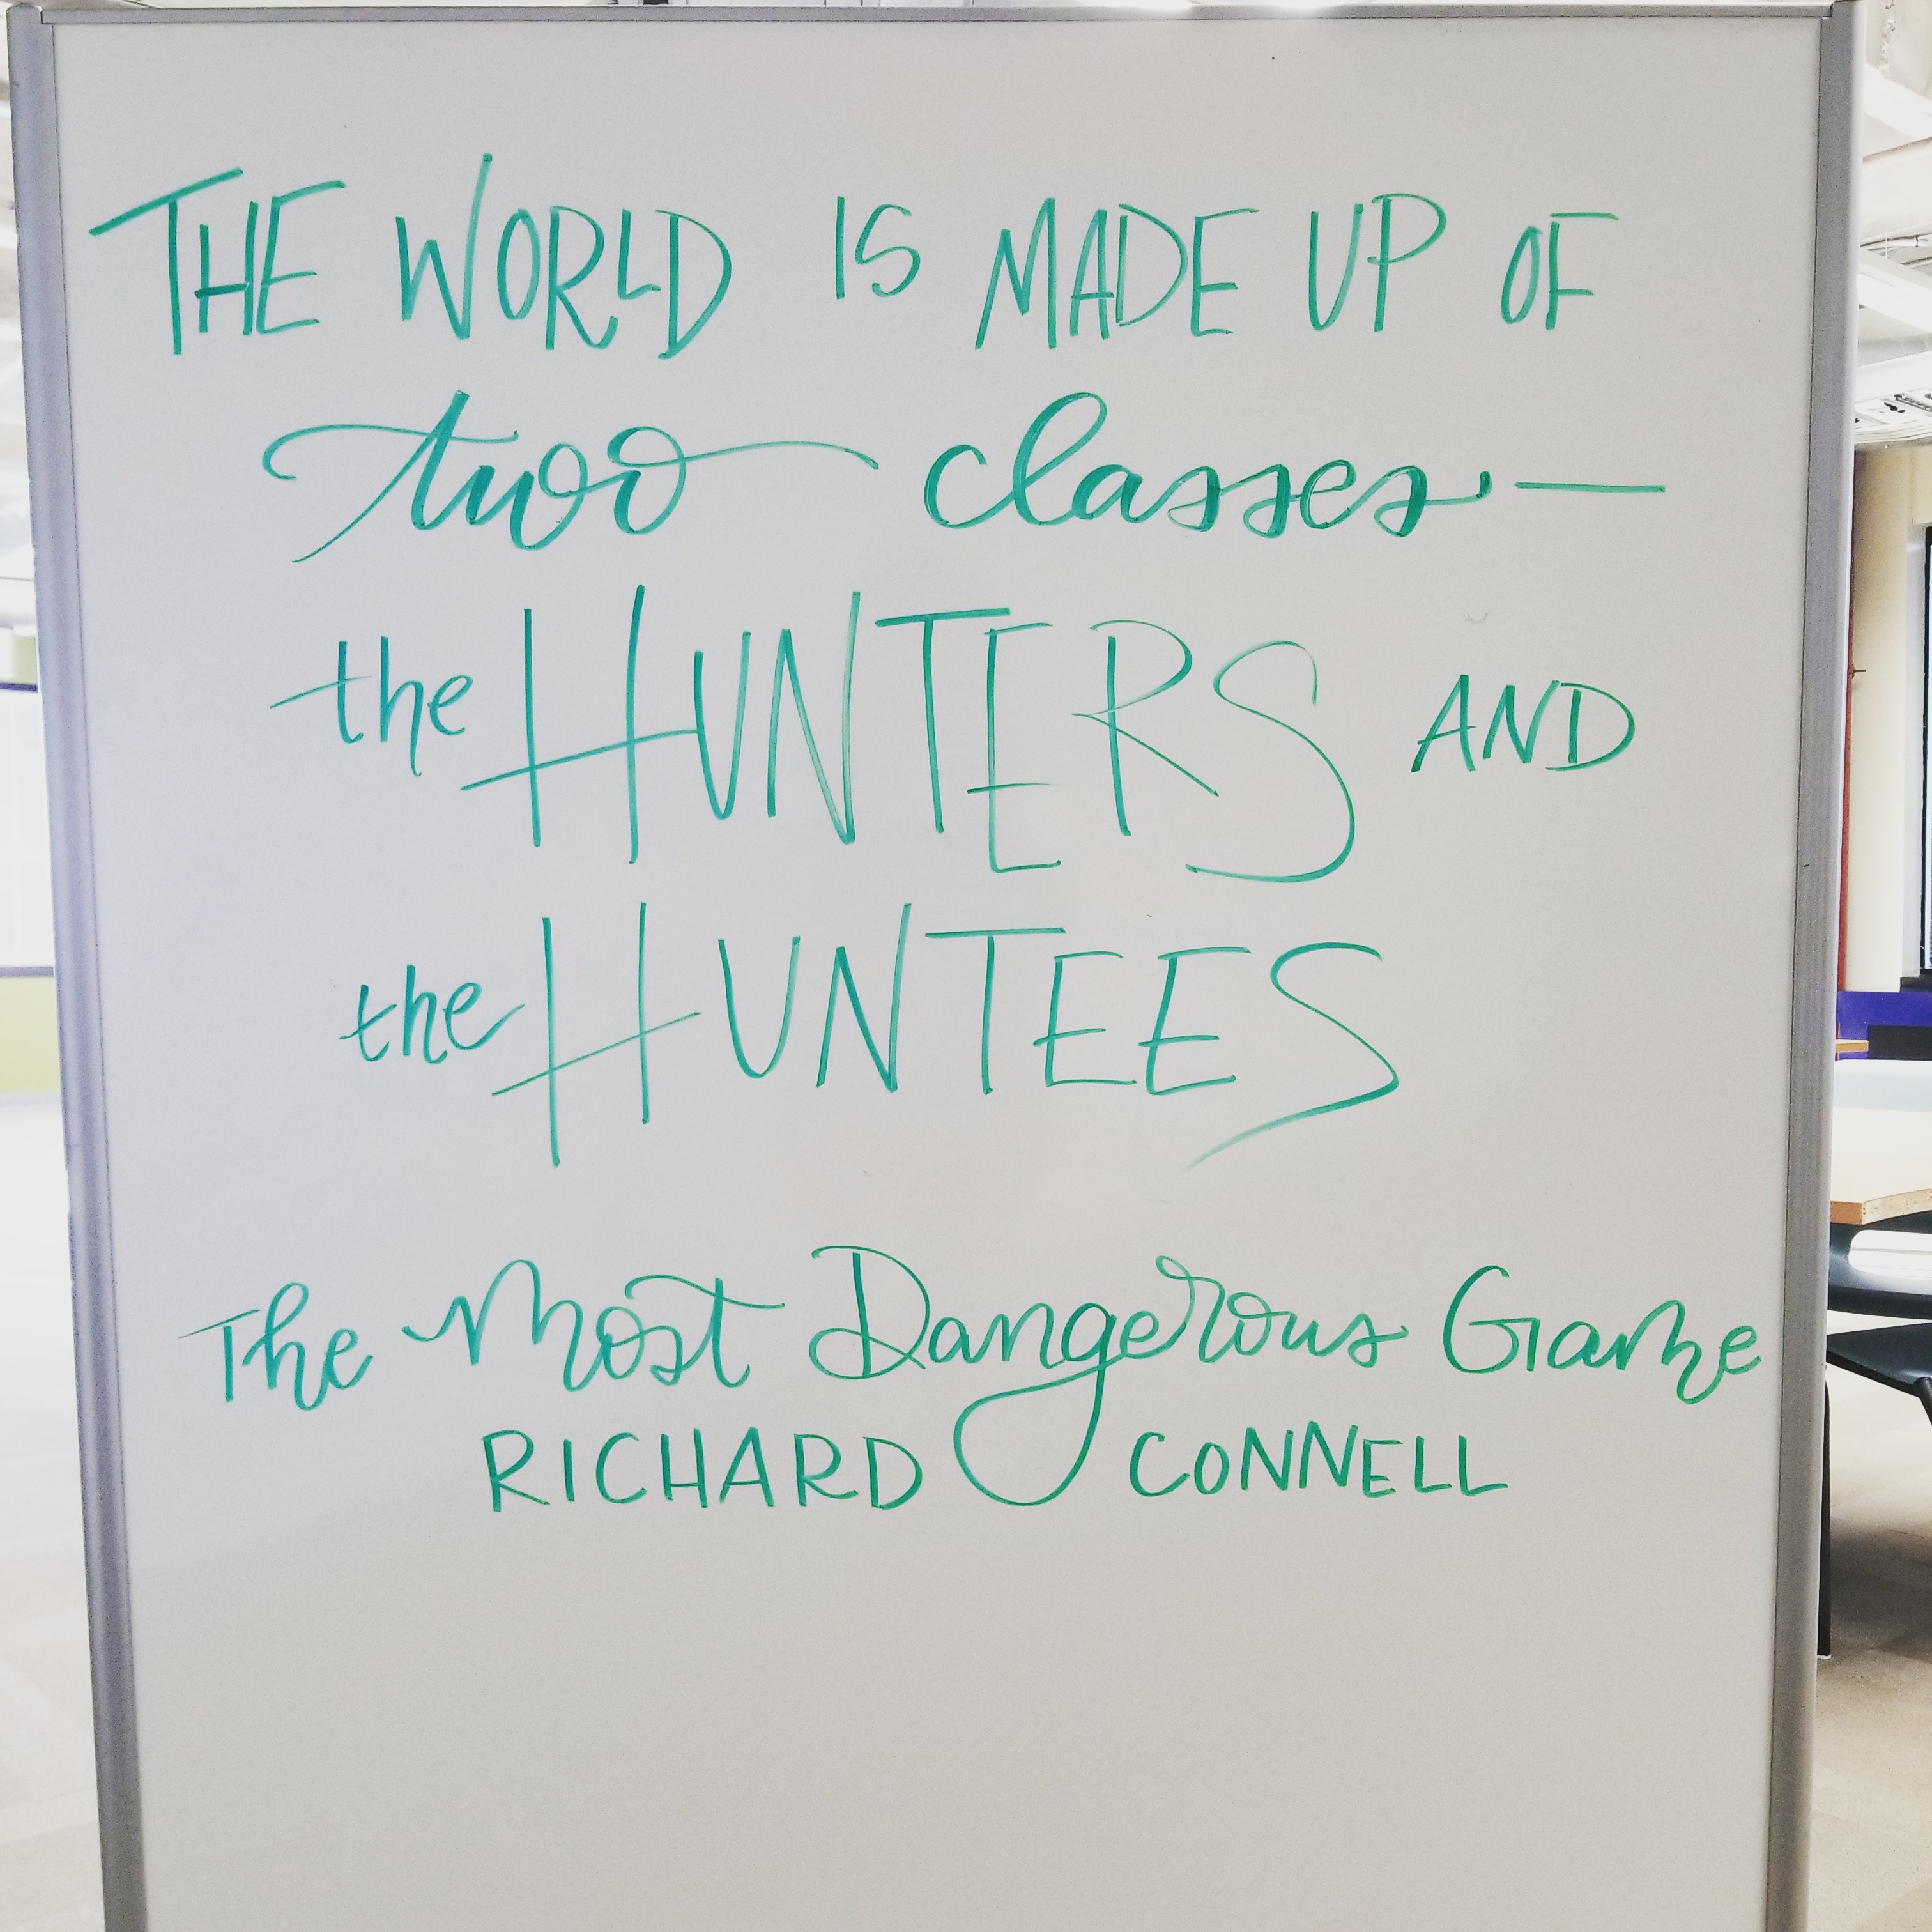 THE WORLD IS MADE UP OF
two classes—
the HUNTERS AND
the HUNTEES
The Most Dangerous Game
RICHARD CONNELL